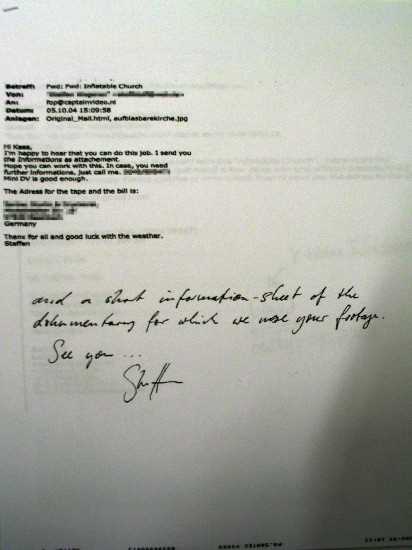 Betreff: Fwd: Fwd: Inflatable Church
Von:
An: fop@captainvideo.nl
Datum: 05.10.04 15:09:58
Anlagen: Original_Mail.html, aufblasbarekirche.jpg
Hi Kees,
I'm happy to hear that you can do this job. I send you
the Informations as attachement.
Hope you can work with this. In case, you need
further informations, just call me.
Mini DV is good enough.
The Adress for the tape and the bill is:
Germany
Thanx for all and good luck with the weather.
Steffen
and a short information-sheet of the
dokumentary for which we use your footage.
See you ...
Steffen